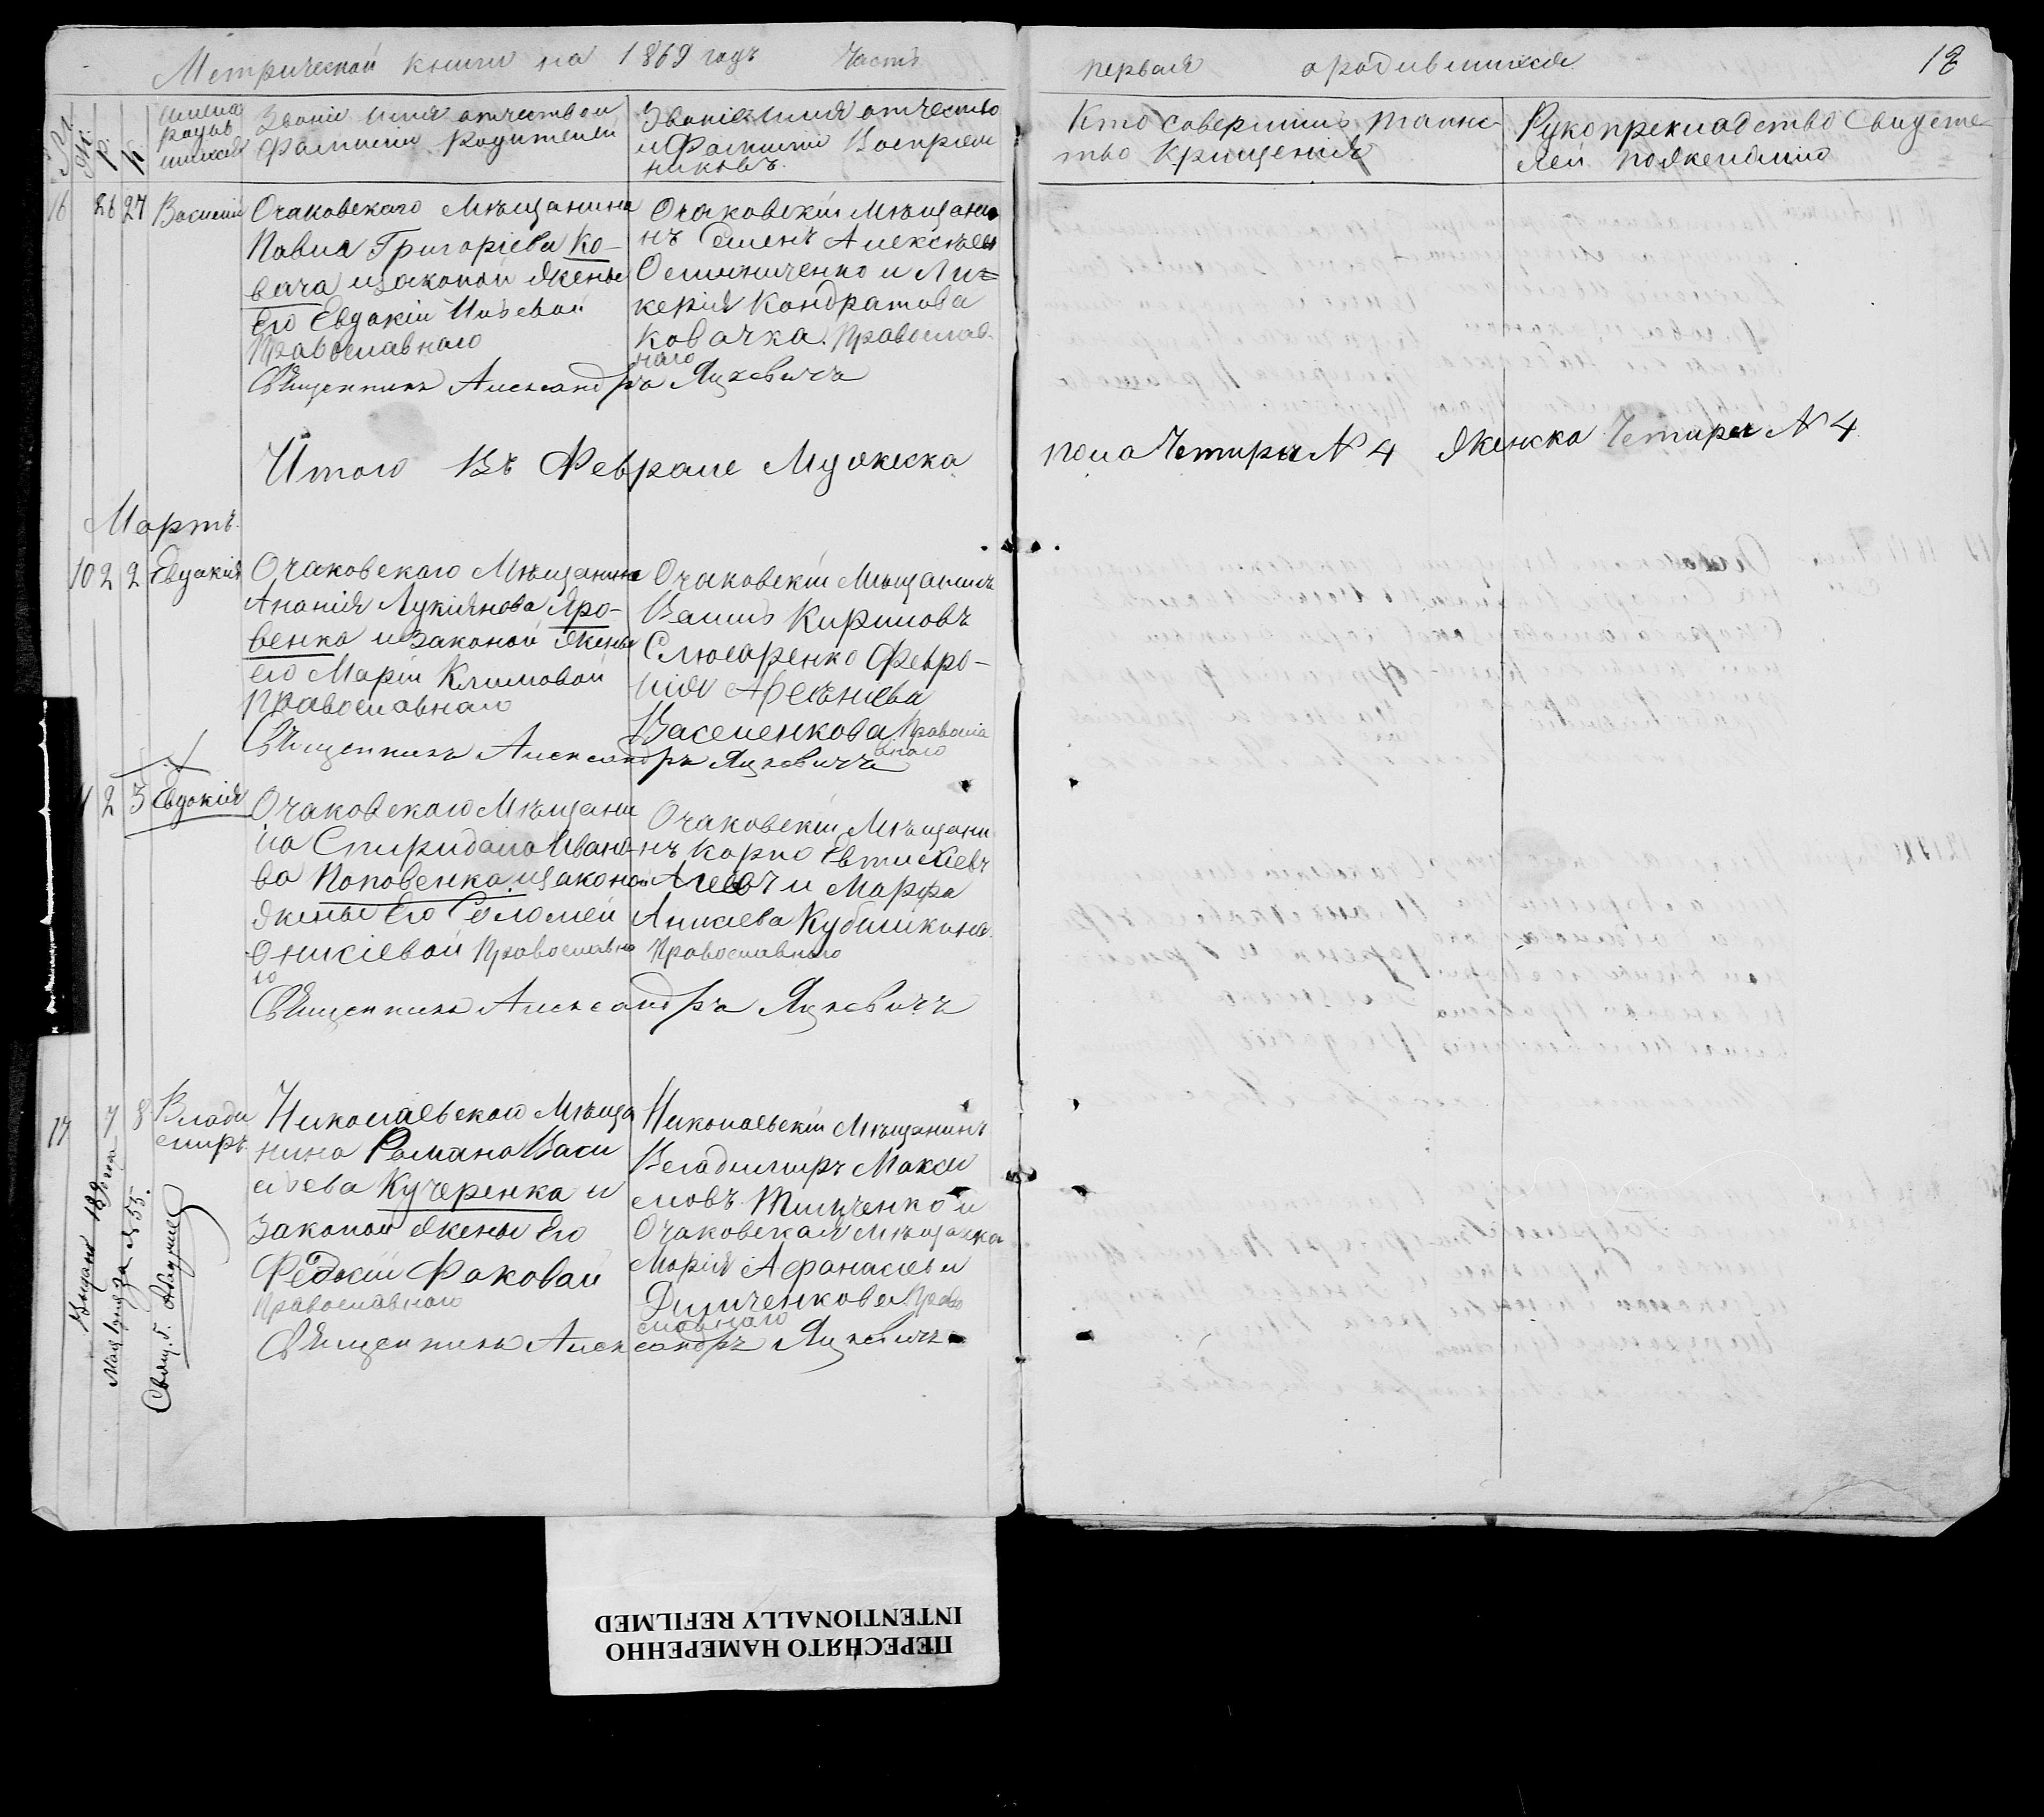 Метрической книги на 1869 годъ Часть
первая ородившихся 12
М. Ж. р. к.
Имена родив шихся
Званіе имя отчество и
фамилія Родителей
Званіе имя отчество
и Фамилія Воспріем
никовъ.
Кто совершилъ таинс-
тво Крищенія
Рукоприкладство Свидете
лей пожеланію
16 26 27 Василій
Очаковскаго Мѣщанина
Павла Григоріева Ко-
вача изаконой жены
Его Евдокіи
Православнаго
Очаковскій Мѣщани
нъ Семенъ Алексѣевъ
Осминиченко и Лу=
керія Кондратова
Ковачка. Православ-
наго
Священникъ Александръ Яцкевичъ
Итого Въ Феврале Мужеска
пола Четыри № 4 Женска Четыри № 4
Мартъ
10 2 2 Евдокія
Очаковскаго Мѣщанина
Ананія Лукіянова Яро-
венка изаконой жены
его Маріи Климовой
православнаго
Очаковскій Мѣщанинъ
Кириловъ
Слюсаренко Февро-
нія Арсѣніева
Васеленкова Правосла
внаго
Священникъ Александръ Яцкевичъ
2 3 Евдокія
Очаковскаго Мѣщани
на Спиридона Ивано-
ва Поповенка изаконой
жены Его Соломеи
Оникіевой Православна
го
Очаковскій Мѣщани
нъ Карпо Евтихіевъ
и Марфа
Аникіева
Православнаго
Священникъ Александръ Яцкевичъ
17 7 8 Влади
миръ
Николаевскаго Мѣща
нина Романа Васи
льева Кучеренка и
законой жены Его
Факовой
Православнаго
Николаевскій Мѣщанинъ
Владимиръ Макси
мовъ и
Очаковская мѣщанка
Марія Афанасіева
Димченкова Право
славнаго
Священникъ Александръ Яцкевичъ
за № 55.
Свящ. Г.
ПЕРЕСНЯТО НАМЕРЕННО
INTENTIONALLY REFILMED